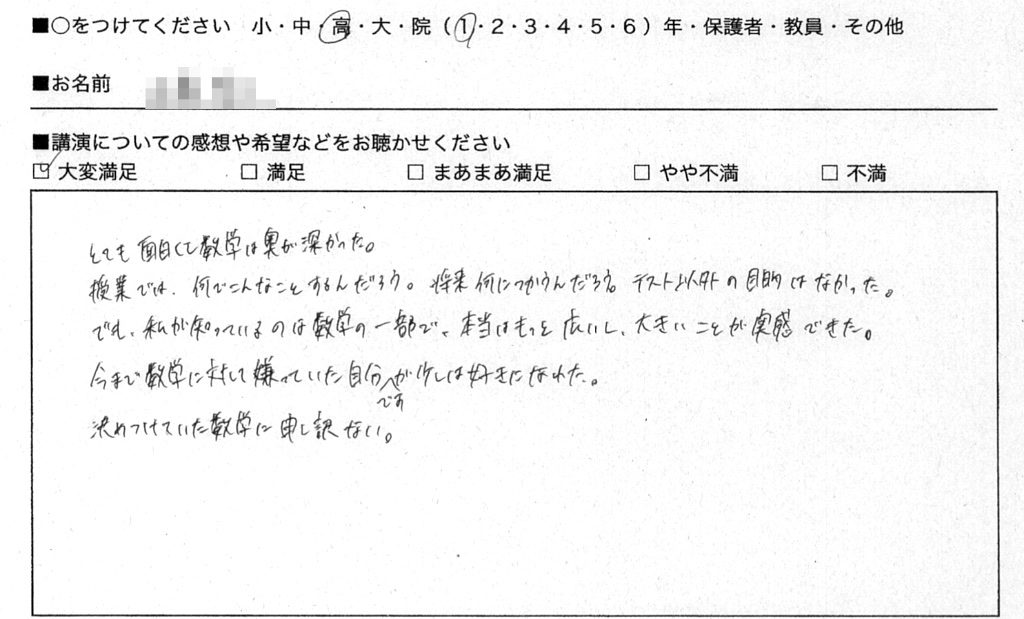 ■○をつけてください 小・中・高・大・院（1・2・3・4・5・6）年・保護者・教員・その他
■お名前
■講演についての感想や希望などをお聴かせください
☑ 大変満足 □ 満足 □ まあまあ満足 □ やや不満 □ 不満
とても面白くて数学は奥が深かった。
授業では、何でこんなことするんだろう。将来何につかうんだろう。テスト以外の目的はなかった。
でも、私が知っているのは数学の一部で、本当はもっと広いし、大きいことが実感できた。
今まで数学に対して嫌っていた自分ですが少しは好きになれた。
決めつけていた数学に申し訳ない。